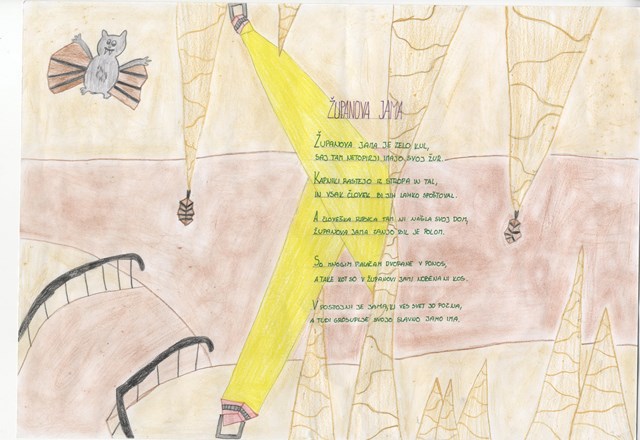 ŽUPANOVA JAMA
ŽUPANOVA JAMA JE ZELO KUL,
SAJ TAM NETOPIRJI IMAJO SVOJ ŽUR.
KAPNIKI RASTEJO IZ STROPA IN TAL,
IN VSAK ČLOVEK BI JIH LAHKO SPOŠTOVAL.
A ČLOVEŠKA RIBICA TAM NI NAŠLA SVOJ DOM,
ŽUPANOVA JAMA ZANJO BIL JE POLOM.
SO MNOGIM PALAČAM DVORANE V PONOS,
A TAKE KOT SO V ŽUPANOVI JAMI NOBENA NI KOS.
V POSTOJNI JE JAMA, KI VES SVET JO POZNA,
A TUDI GROSUPLJE SVOJO SLAVNO JAMO IMA.